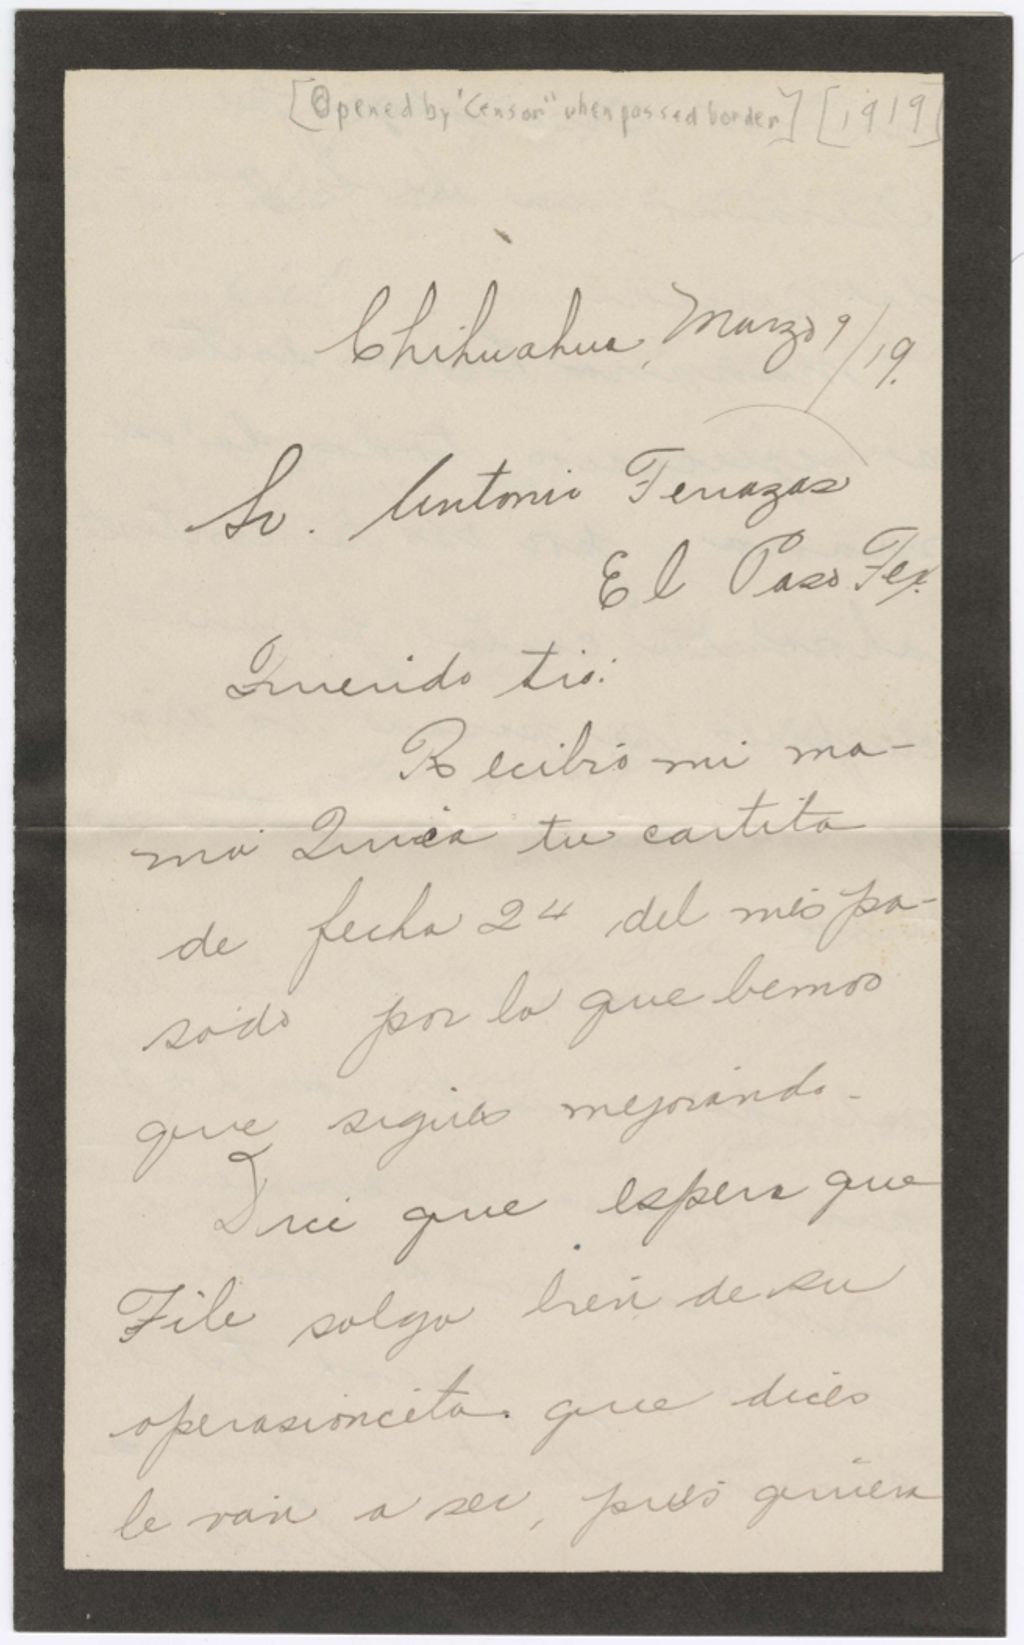 [Opened by "Censor" when passed border] [1919]
Chihuahua, Marzo 9/19.
Sr. Antonio Terrazas
El Paso Tex.
Querido tio:
Recibió mi ma-
má tu cartita
de fecha 24 del mes pa-
sado por la que bemos
que sigues mejorando.
Dice que espera que
File salga bien de su
operasioncita que dices
le van a ser, pues quiera